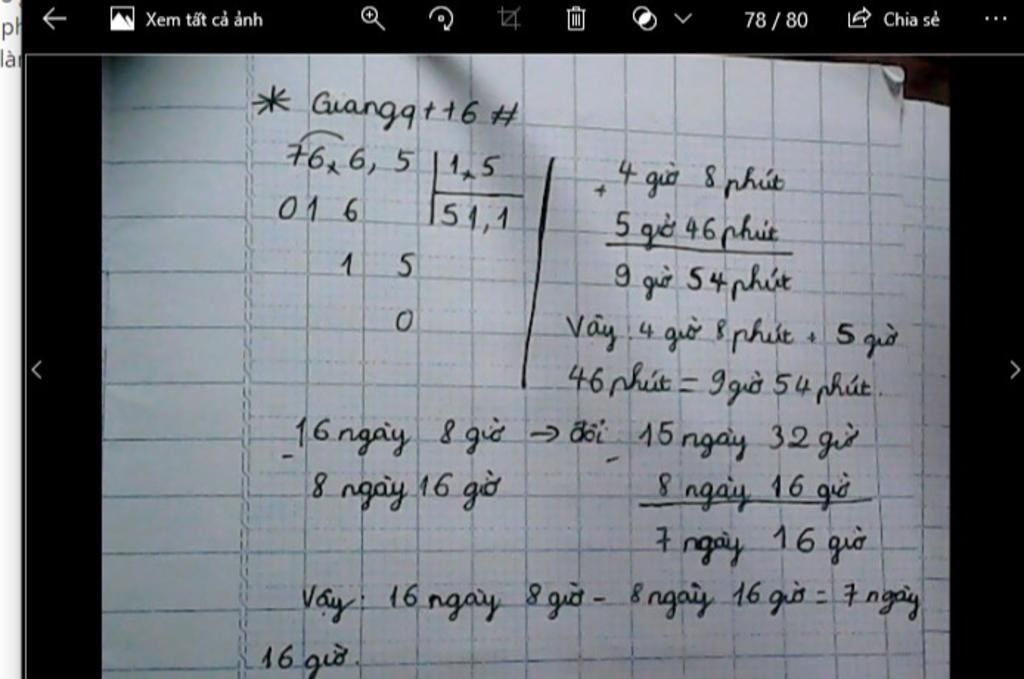 ph
Xem tất cả ảnh
78 / 80
Chia sẻ
làn
* Giangq++6 #
76,6,5 | 1,5
016 51,1
1 5
0
+ 4 giờ 8 phút
5 giờ 46 phút
9 giờ 54 phút
Vậy : 4 giờ 8 phút + 5 giờ
46 phút = 9 giờ 54 phút.
- 16 ngày 8 giờ → đổi - 15 ngày 32 giờ
8 ngày 16 giờ 8 ngày 16 giờ
7 ngày 16 giờ
Vậy : 16 ngày 8 giờ - 8 ngày 16 giờ = 7 ngày
16 giờ.